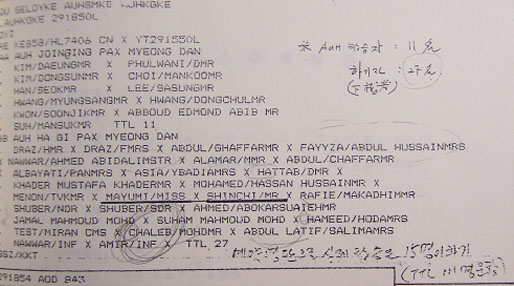 QU SELDYKE AUHSMKE HJHKGKE
AUHKGKE 291850L
KE858/HL7406 CN X YT291550L
AUH JOINGING PAX MYEONG DAN
KIM/DAEUNGMR X PHULWANI/DMR
KIM/DONGSUNMR X CHOI/MANKOOMR
HAN/SEOKMR X LEE/SASUNGMR
HWANG/MYUNGSANGMR X HWANG/DONGCHULMR
KWON/SOONJIKMR X ABBOUD EDMOND ABIB MR
SUH/MANSUKMR TTL 11
AUH HA GI PAX MYEONG DAN
DRAZ/HMR X DRAZ/FMRS X ABDUL/GHAFFARMR X FAYYZA/ABDUL HUSSAINMRS
NAWWAR/AHMED ABIDALIMSTR X ALAMAR/MMR X ABDUL/CHAFFARMR
ALBAYATI/PANMRS X ASIA/YBADIAMRS X HATTAB/DMR X
KHADER MUSTAFA KHADERMR X MOHAMED/HASSAN HUSSAINMR X
MENON/TVKMR X MAYUMI/MISS X SHINCHI/MR X RAFIE/MAKADHIMMR
SHUBER/NDR X SHUBER/SDR X AHMED/ABOKARSUAIEHMR
JAMAL MAHMOUD MOHD X SUHAM MAHMOUD MOHD X HAMEED/HODAMRS
TEST/MIRAN CMS X CHALEB/MOHDMR X ABDUL LATIF/SALIMAMRS
NAWWAR/INF X AMIR/INF X TTL 27
SSZ/KKT
291854 AOD BA3
※ AUH 탑승자 : 11名
하기자 : 27名